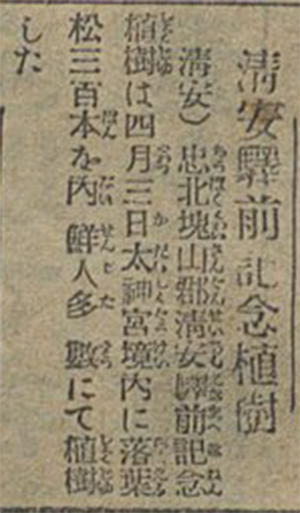 淸安驛前記念植樹
淸安）忠北塊山郡淸安驛前記念
植樹は四月三日太神宮境內に落葉
松三百本を內鮮人多數にて植樹
した